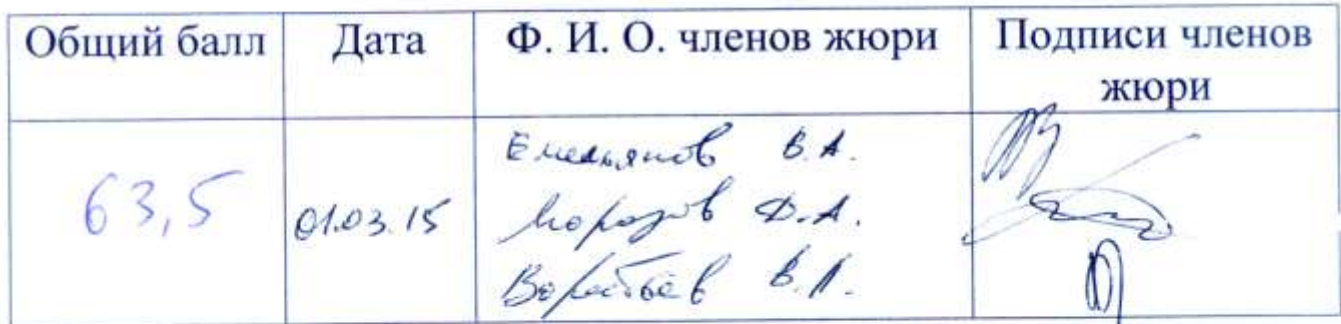 Общий балл Дата Ф. И. О. членов жюри Подписи членов жюри
63,5 01.03.15 Емельянов В.А.
Морозов Д.А.
Воробьёв В.П.